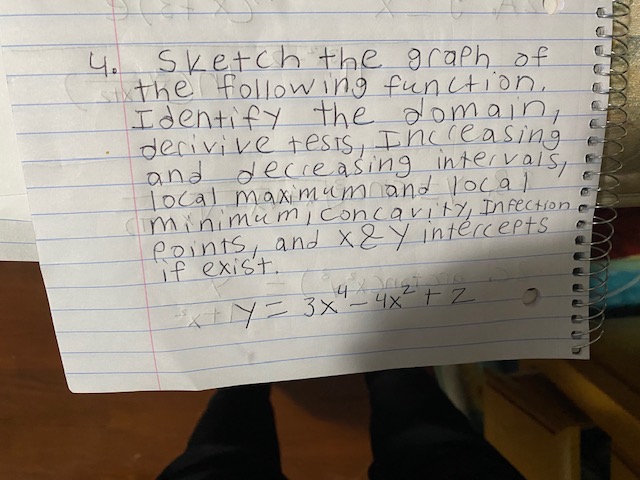 4. Sketch the graph of
the following function.
Identify the domain,
derivive tests, Increasing
and decreasing intervals,
local maximum and local
minimum, concavity, Infection
Points, and X & Y intercepts
if exist.
y = 3x⁴ - 4x² + 2